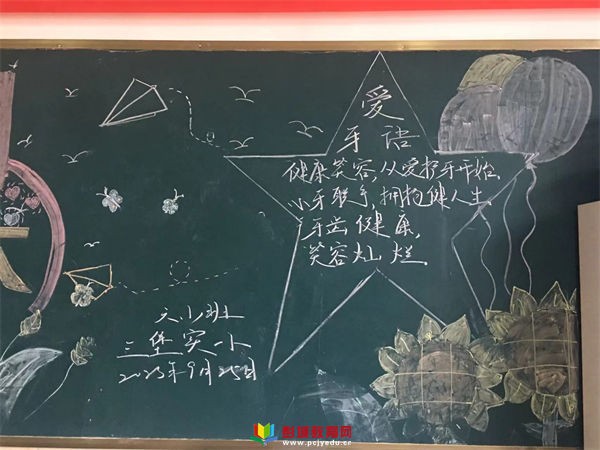 爱
牙语
健康笑容,从爱护牙开始,
小牙联手,拥抱健人生.
牙齿健康,
笑容灿烂.
六(1)班
三堡实小
2023年9月25日
彭城教育网
www.pcjyedu.cn